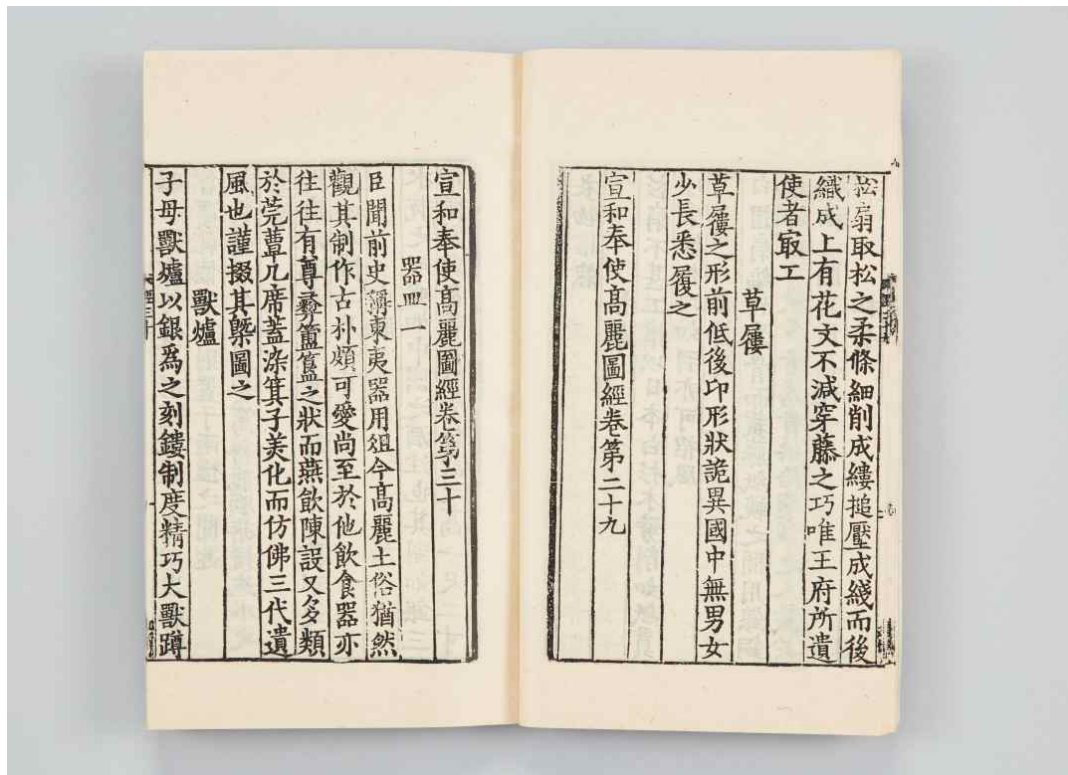 松扇取松之柔條細削成縷搥壓成綫而後
織成上有花文不減穿藤之巧唯王府所遺
使者㝡工
草屨
草屨之形前低後卬形狀詭異國中無男女
少長悉履之
宣和奉使髙麗圖經卷第二十九
宣和奉使髙麗圖經卷第三十
器皿一
臣聞前史稱東夷器用俎今髙麗土俗猶然
觀其制作古朴頗可愛尚至於他飲食器亦
往往有尊彝簠簋之狀而燕飲陳設又多類
於莞蕈几席蓋染箕子美化而仿佛三代遺
風也謹掇其槩圖之
獸爐
子母獸爐以銀爲之刻鏤制度精巧大獸蹲